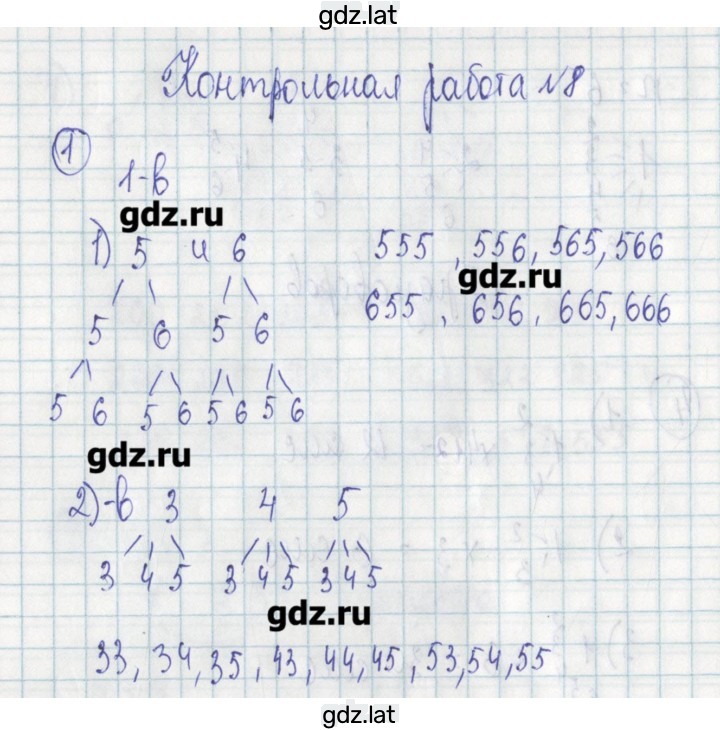 gdz.lat
Контрольная работа №8
1
1-в
gdz.ru
1) 5 и 6 555, 556, 565, 566
gdz.ru
5 6 5 6 655, 656, 665, 666
5 6 5 6 5 6 5 6
gdz.ru
2)-в 3 4 5
3 4 5 3 4 5 3 4 5
gdz.ru
33, 34, 35, 43, 44, 45, 53, 54, 55
gdz.lat